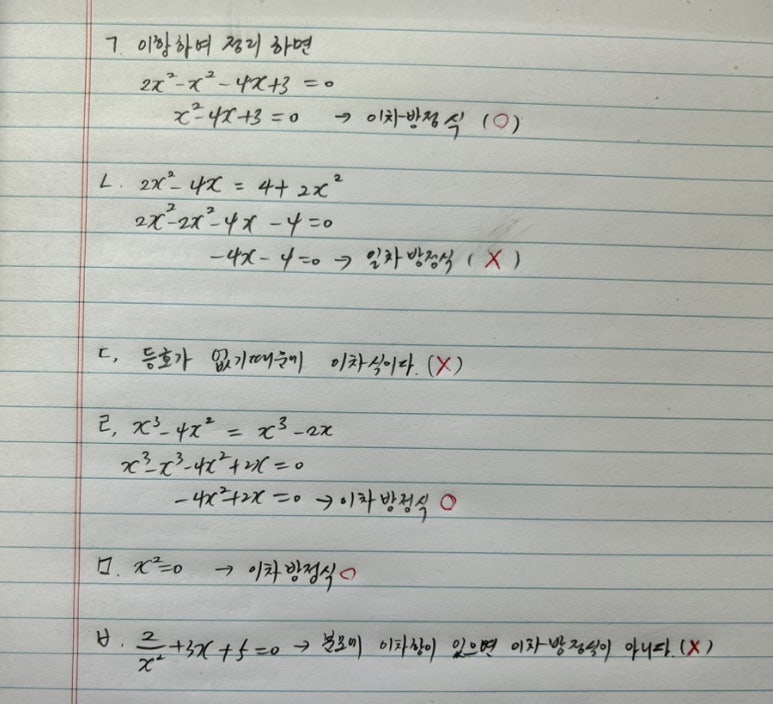 ㄱ. 이항하여 정리 하면
2x²-x²-4x+3 = 0
x²-4x+3 = 0 → 이차방정식 (O)
ㄴ. 2x²-4x = 4+2x²
2x²-2x²-4x-4=0
-4x-4=0 → 일차방정식 (X)
ㄷ, 등호가 없기때문에 이차식이다.(X)
ㄹ, x³-4x² = x³-2x
x³-x³-4x²+2x=0
-4x²+2x=0 → 이차방정식 O
ㅁ. x²=0 → 이차방정식 O
ㅂ. 2/x²+3x+5=0 → 분모에 이차항이 있으면 이차방정식이 아니다.(X)